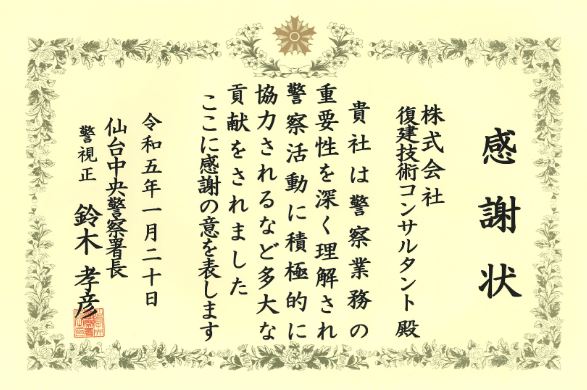 感謝状
株式会社
復建技術コンサルタント 殿
貴社は警察業務の
重要性を深く理解され
警察活動に積極的に
協力されるなど多大な
貢献をされました
ここに感謝の意を表します
令和五年一月二十日
仙台中央警察署長
警視正 鈴木孝彦